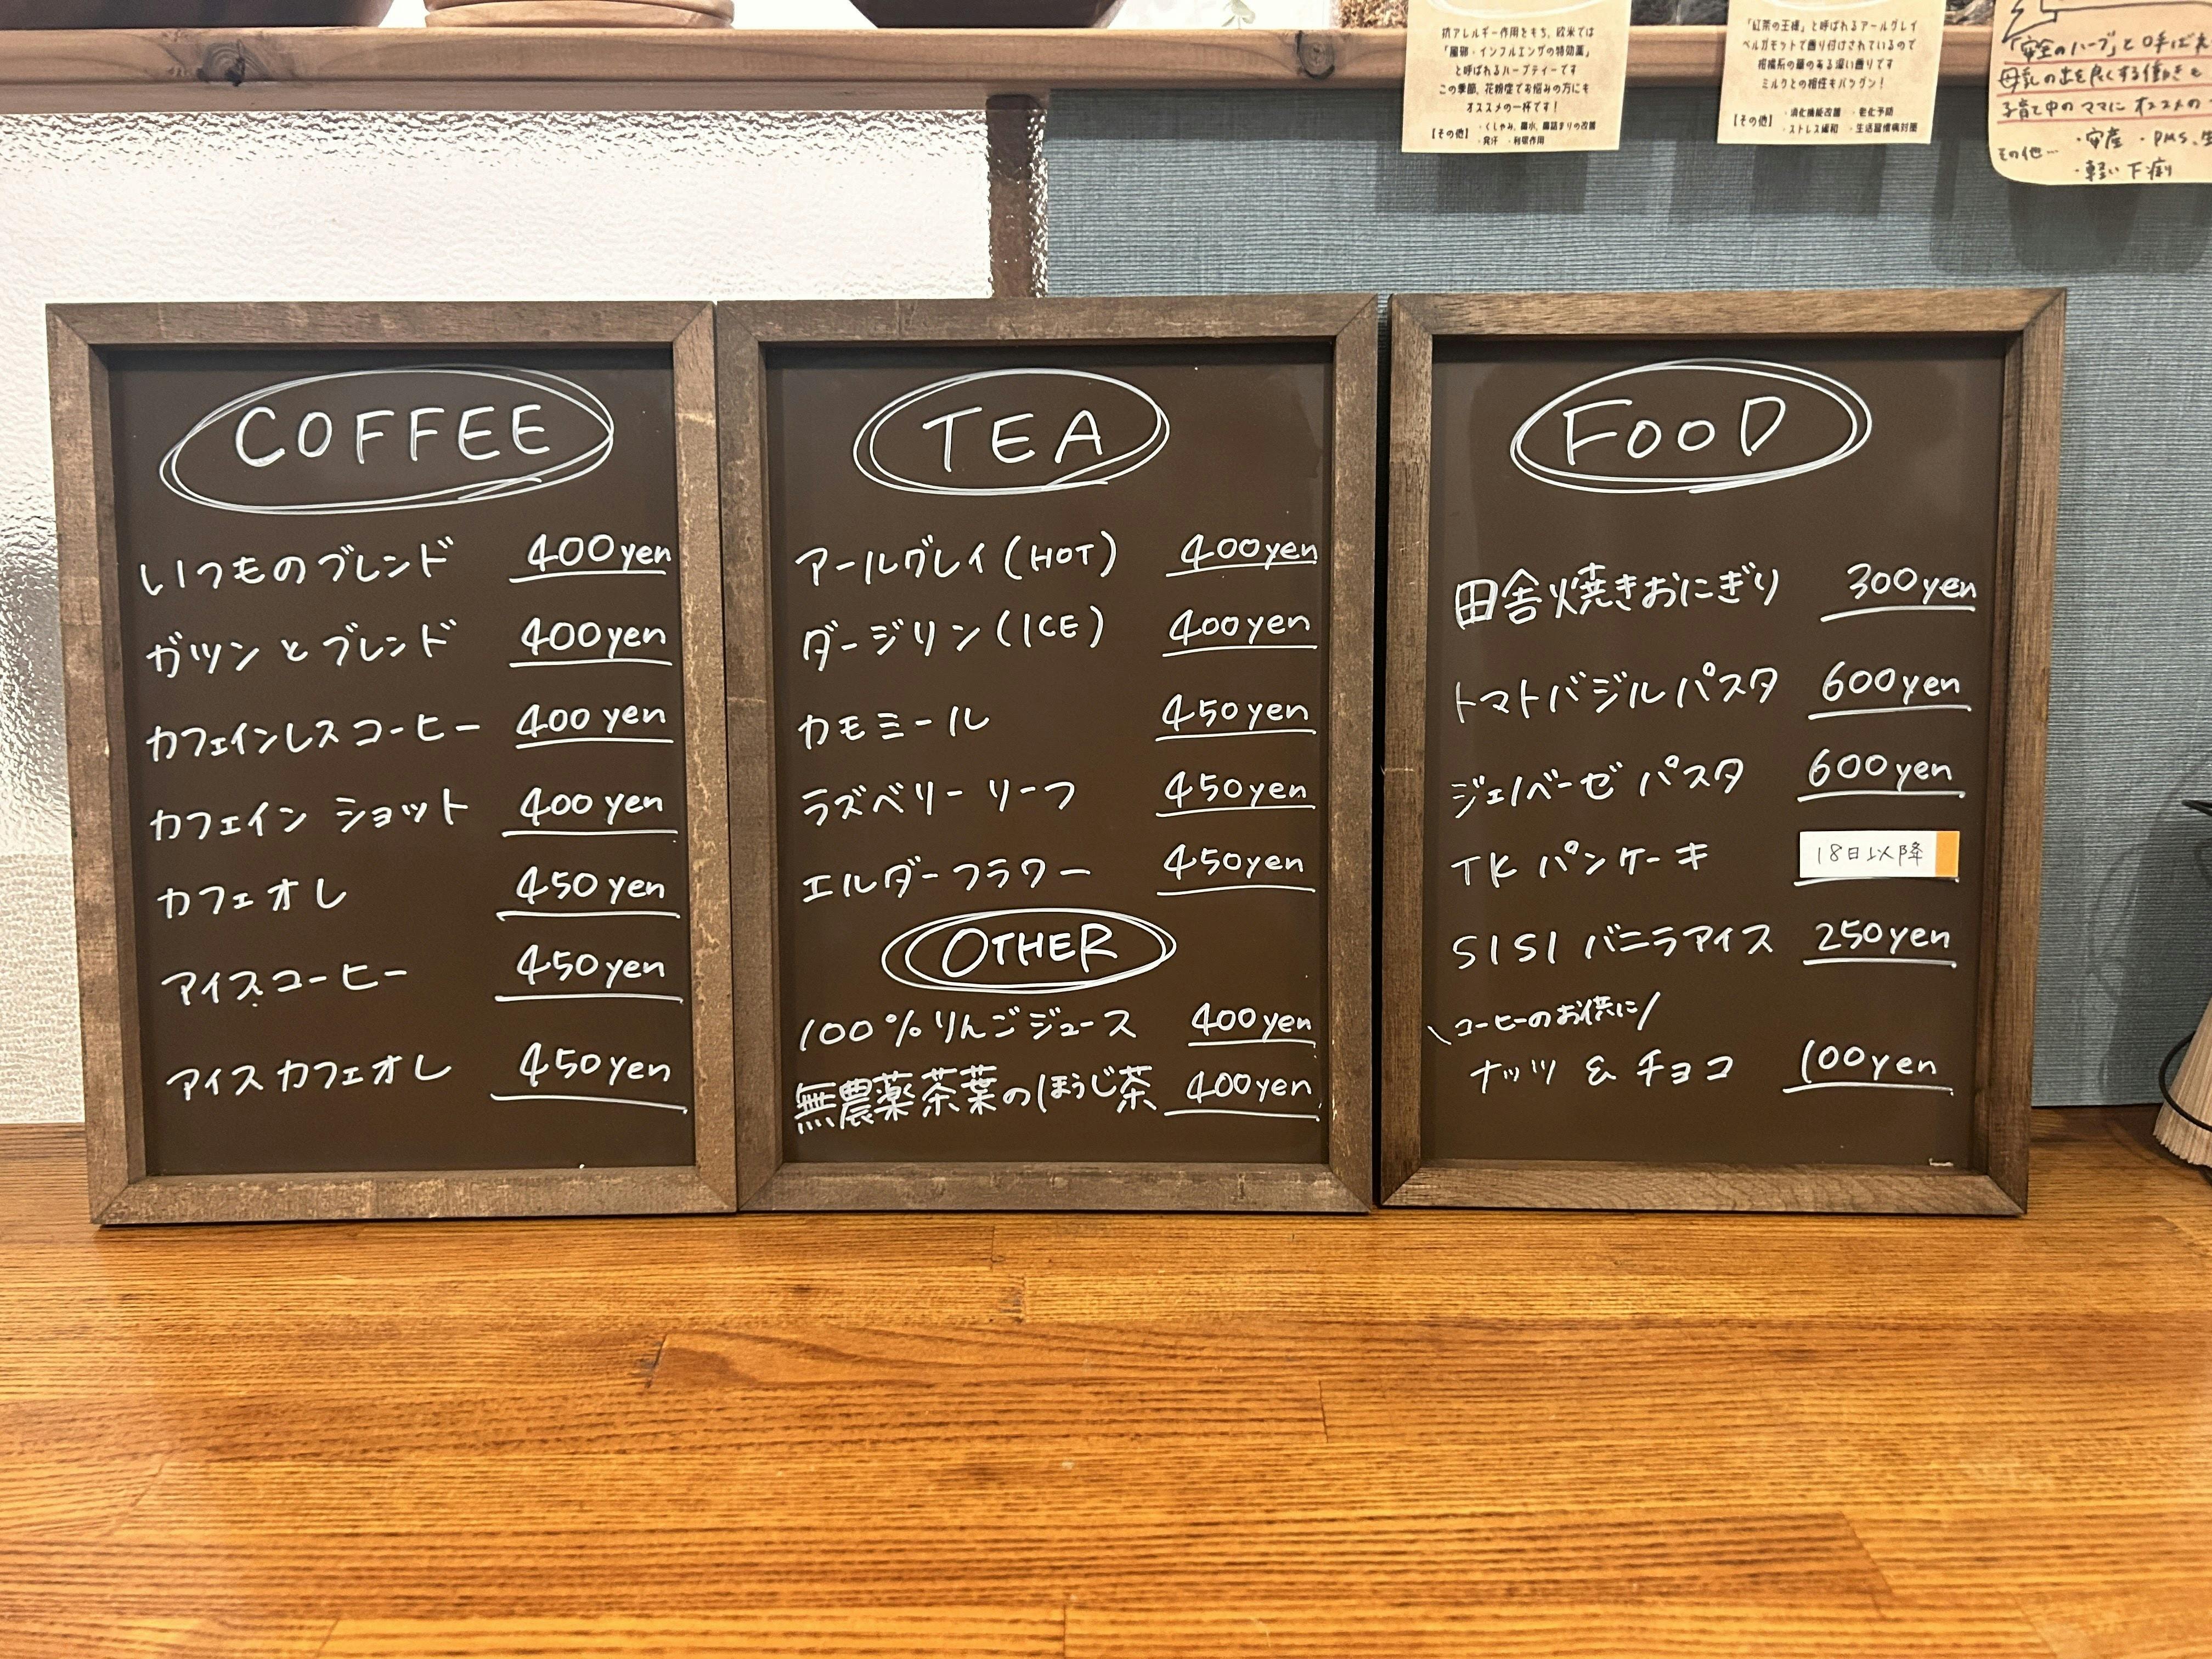 抗アレルギー作用をもち、欧米では
「風邪・インフルエンザの特効薬」
と呼ばれるハーブティーです
この季節、花粉症でお悩みの方にも
オススメの一杯です！
【その他】・くしゃみ、鼻水、鼻詰まりの改善
・発汗 ・利尿作用
「紅茶の王様」と呼ばれるアールグレイ
ベルガモットで香り付けされているので
柑橘系の華のある深い香りです
ミルクとの相性もバツグン！
【その他】・消化機能改善 ・老化予防
・ストレス緩和 ・生活習慣病対策
「安全のハーブ」と呼ばれ
母乳の出を良くする働きも
子育て中のママにオススメの
その他… ・安産 ・PMS、生
・軽い下痢
COFFEE
いつものブレンド 400yen
ガツンとブレンド 400yen
カフェインレスコーヒー 400yen
カフェイン ショット 400yen
カフェオレ 450yen
アイスコーヒー 450yen
アイスカフェオレ 450yen
TEA
アールグレイ(HOT) 400yen
ダージリン(ICE) 400yen
カモミール 450yen
ラズベリーリーフ 450yen
エルダーフラワー 450yen
OTHER
100%りんごジュース 400yen
無農薬茶葉のほうじ茶 400yen
FOOD
田舎焼きおにぎり 300yen
トマトバジルパスタ 600yen
ジェノベーゼ パスタ 600yen
TK パンケーキ 18日以降
SISI バニラアイス 250yen
\コーヒーのお供に/
ナッツ & チョコ 100yen